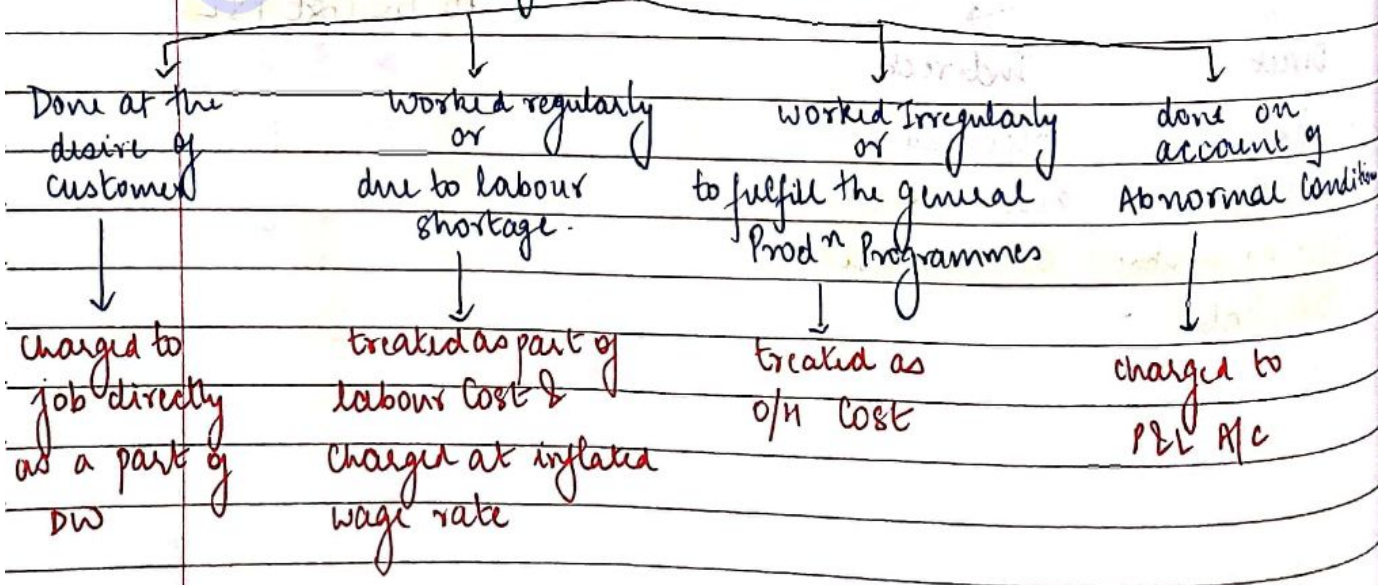 Done at the
desire of
customer
Worked regularly
or
due to labour
shortage.
worked Irregularly
or
to fulfill the general
Prodⁿ Programmes
done on
account of
Abnormal Condition
charged to
job directly
as a part of
DW
treated as part of
labour Cost &
Charged at inflated
wage rate
treated as
O/H Cost
charged to
P&L A/c